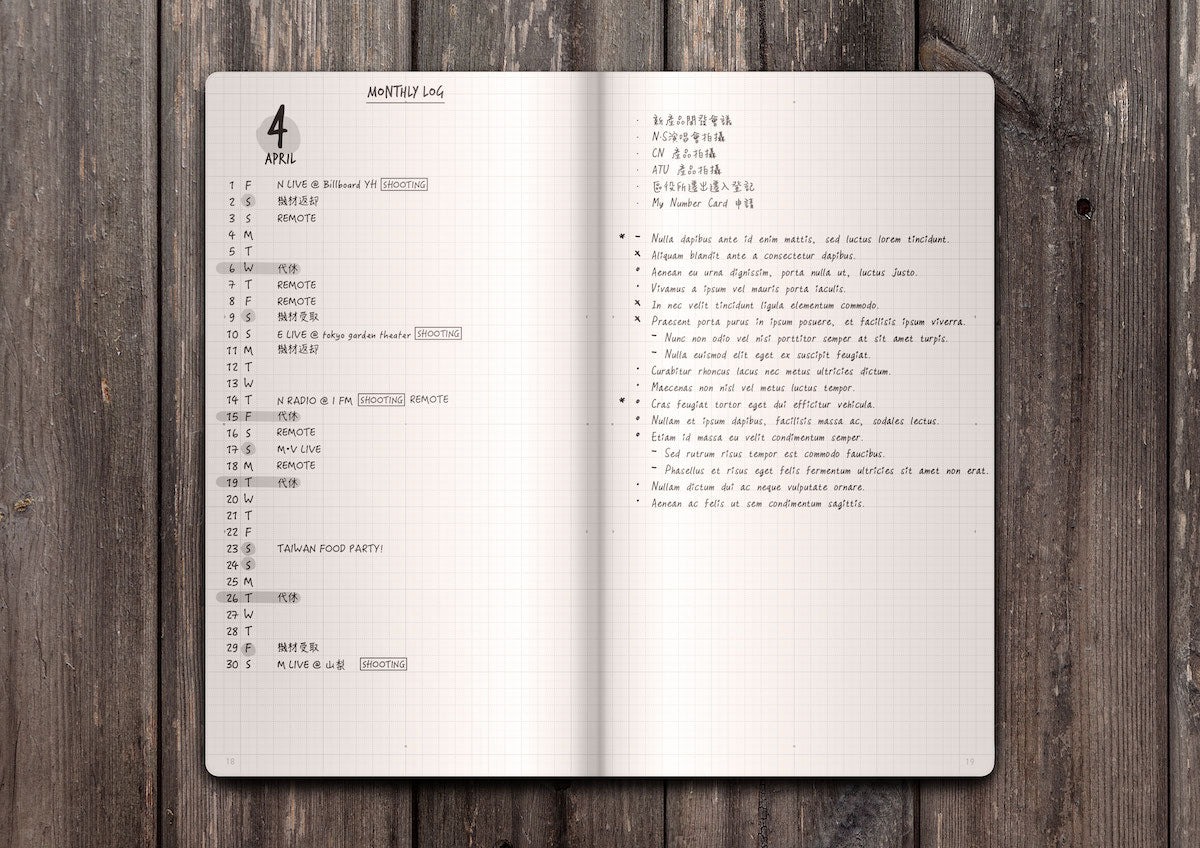 MONTHLY LOG
4
APRIL
1 F N LIVE @ Billboard YH SHOOTING
2 S 機材返却
3 S REMOTE
4 M
5 T
6 W 代休
7 T REMOTE
8 F REMOTE
9 S 機材受取
10 S E LIVE @ tokyo garden theater SHOOTING
11 M 機材返却
12 T
13 W
14 T N RADIO @ I FM SHOOTING REMOTE
15 F 代休
16 S REMOTE
17 S M+V LIVE
18 M REMOTE
19 T 代休
20 W
21 T
22 F
23 S TAIWAN FOOD PARTY!
24 S
25 M
26 T 代休
27 W
28 T
29 F 機材受取
30 S M LIVE @ 山梨 SHOOTING
18
· 新產品開發會議
· N·S演唱會拍攝
· CN 產品拍攝
· ATU 產品拍攝
· 區役所遷出遷入登記
· My Number Card 申請
* – Nulla dapibus ante id enim mattis, sed luctus lorem tincidunt.
x Aliquam blandit ante a consectetur dapibus.
∘ Aenean eu urna dignissim, porta nulla ut, luctus justo.
· Vivamus a ipsum vel mauris porta iaculis.
x In nec velit tincidunt ligula elementum commodo.
x Praesent porta purus in ipsum posuere, et facilisis ipsum viverra.
– Nunc non odio vel nisi porttitor semper at sit amet turpis.
– Nulla euismod elit eget ex suscipit feugiat.
· Curabitur rhoncus lacus nec metus ultricies dictum.
· Maecenas non nisl vel metus luctus tempor.
* ∘ Cras feugiat tortor eget dui efficitur vehicula.
∘ Nullam et ipsum dapibus, facilisis massa ac, sodales lectus.
∘ Etiam id massa eu velit condimentum semper.
– Sed rutrum risus tempor est commodo faucibus.
– Phasellus et risus eget felis fermentum ultricies sit amet non erat.
· Nullam dictum dui ac neque vulputate ornare.
· Aenean ac felis ut sem condimentum sagittis.
19